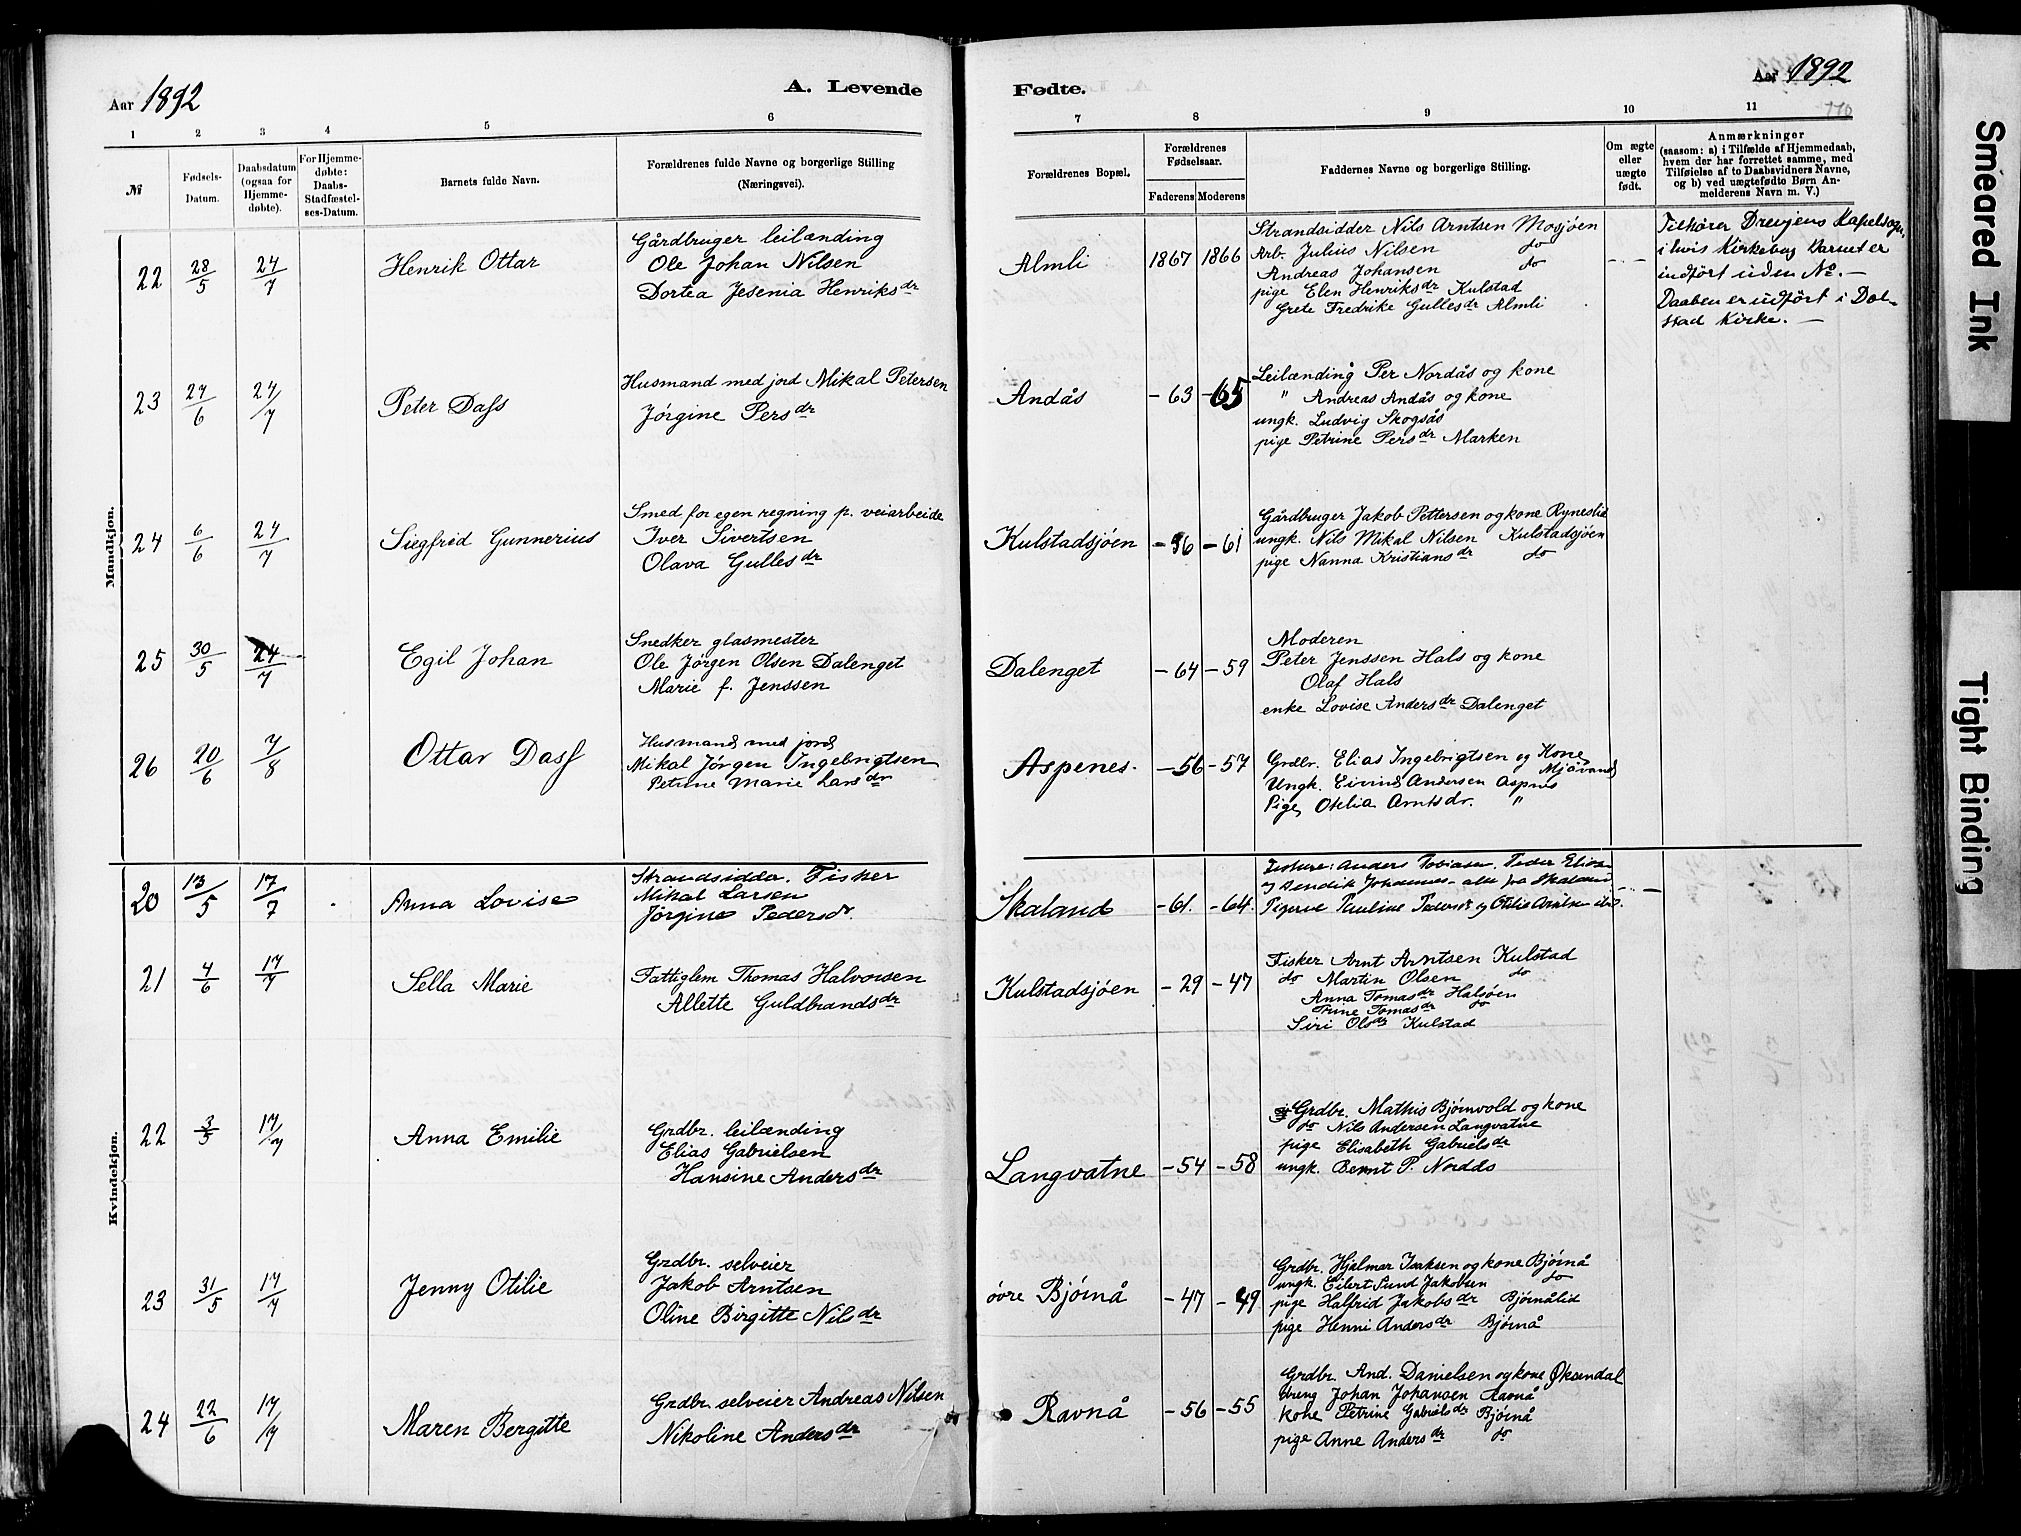 Aar 1892
A. Levende
Fødte.
Aar 1892
110
1 2 3 4 5 6
7 8 9 10 11
№
Fødsels-
Datum.
Daabsdatum
(ogsaa for
Hjemme-
døbte).
For Hjemme-
døbte:
Daabs-
Stadfæstel-
ses-Datum.
Barnets fulde Navn.
Forældrenes fulde Navne og borgerlige Stilling
(Næringsvei).
Forældrenes Bopæl.
Forældrenes
Fødselsaar.
Faderens Moderens
Faddernes Navne og borgerlige Stilling.
Om ægte
eller
uægte
født.
Anmærkninger
(saasom: a) i Tilfælde af Hjemmedaab,
hvem der har forrettet samme, med
Tilføielse af to Daabsvidners Navne,
og b) ved uægtefødte Børn An-
melderens Navn m. V.)
Mandkjøn.
22 28/5 24/7 Henrik Ottar
Gårdbruger leilænding
Ole Johan Nilsen
Dortea Jesenia Henriksdr
Almli 1867 1866
Strandsidder Nils Arntsen Mosjøen
Arb. Julius Nilsen do
Andreas Johansen do
pige Elen Henriksdr Kulstad
Grete Fredrike Gullesdr Almli
Tilhører Drevjens Kapelsogn,
i hvis Kirkebog Barnet er
indført uden No. —
Daaben er udført i Dol-
stad Kirke. —
23 27/6 24/7 Peter Dass
Husmand med jord Mikal Petersen
Jørgine Persdr
Andås - 63 - 65
Leilænding Per Nordås og kone
" Andreas Andås og kone
ungk. Ludvig Skogsås
pige Petrine Persdr Marken
24 6/6 24/7 Siegfrid Gunnerius
Smed for egen regning p. veiarbeide
Iver Sivertsen
Olava Gullesdr
Kulstadsjøen - 36 - 61
Gårdbruger Jakob Pettersen og kone Ryneslid
ungk. Nils Mikal Nilsen Kulstadsjøen
pige Nanna Kristiansdr do
25 30/5 24/7 Egil Johan
Snedker glasmester
Ole Jørgen Olsen Dalenget
Marie f. Jenssen
Dalenget - 64 - 59
Moderen
Peter Jenssen Hals og kone
Olaf Hals
enke Lovise Andersdr Dalenget
26 20/6 7/8 Ottar Dass
Husmand med jord
Mikal Jørgen Ingebrigtsen
Petrine Marie Larsdr
Aspenes. - 56 - 57
Grdbr. Elias Ingebrigtsen og Kone,
Mjåvand
Ungk. Eivind Andersen Aspnes
Pige, Otelia Arntsdr. "
Kvindekjøn.
20 13/5 17/7 Anna Lovise
Strandsidder. Fisker
Mikal Larsen
Jørgine Pedersdr.
Skaland - 61. - 64.
Anders Tobiasen. Peder Elias
Johannes - alle fra Skaland
Pigerne Pauline Pedersdr og Otilie Arntsen
21 4/6 17/7 Sella Marie
Fattiglem Thomas Halvorsen
Allette Guldbrandsdr
Kulstadsjøen - 29 - 47
Fisker Arnt Arntsen Kulstad
do Martin Olsen do
Anna Tomasdr Halsøen
Trine Tomasdr do
Siri Olsdr Kulstad
22 3/5 17/7 Anna Emilie
Grdbr. leilænding
Elias Gabrielsen
Hansine Andersdr
Langvatne - 54 - 58
Grdbr. Mathis Bjørnvold og kone
do Nils Andersen Langvatne
pige Elisabeth Gabrielsdr
ungk. Bernt P. Nordås
23 31/5 17/7 Jenny Otilie
Grdbr. selveier
Jakob Arntsen
Oline Birgitte Nilsdr
øvre Bjørnå - 47 - 49
Grdbr. Hjalmar Isaksen og kone Bjørnå
ungk. Eilert Sund Jakobsen do
pige Halfrid Jakobsdr Bjørnålid
pige Henni Andersdr Bjørnå
24 22/6 17/7 Maren Bergitte
Grdbr. selveier Andreas Nilsen
Nikoline Andersdr
Ravnå - 56 - 55
Grdbr. And. Danielsen og kone Øksendal
dreng Johan Johansen Ravnå
kone Petrine Gabrielsdr Bjørnå
pige Anne Andersdr do
Smeared Ink
Tight Binding